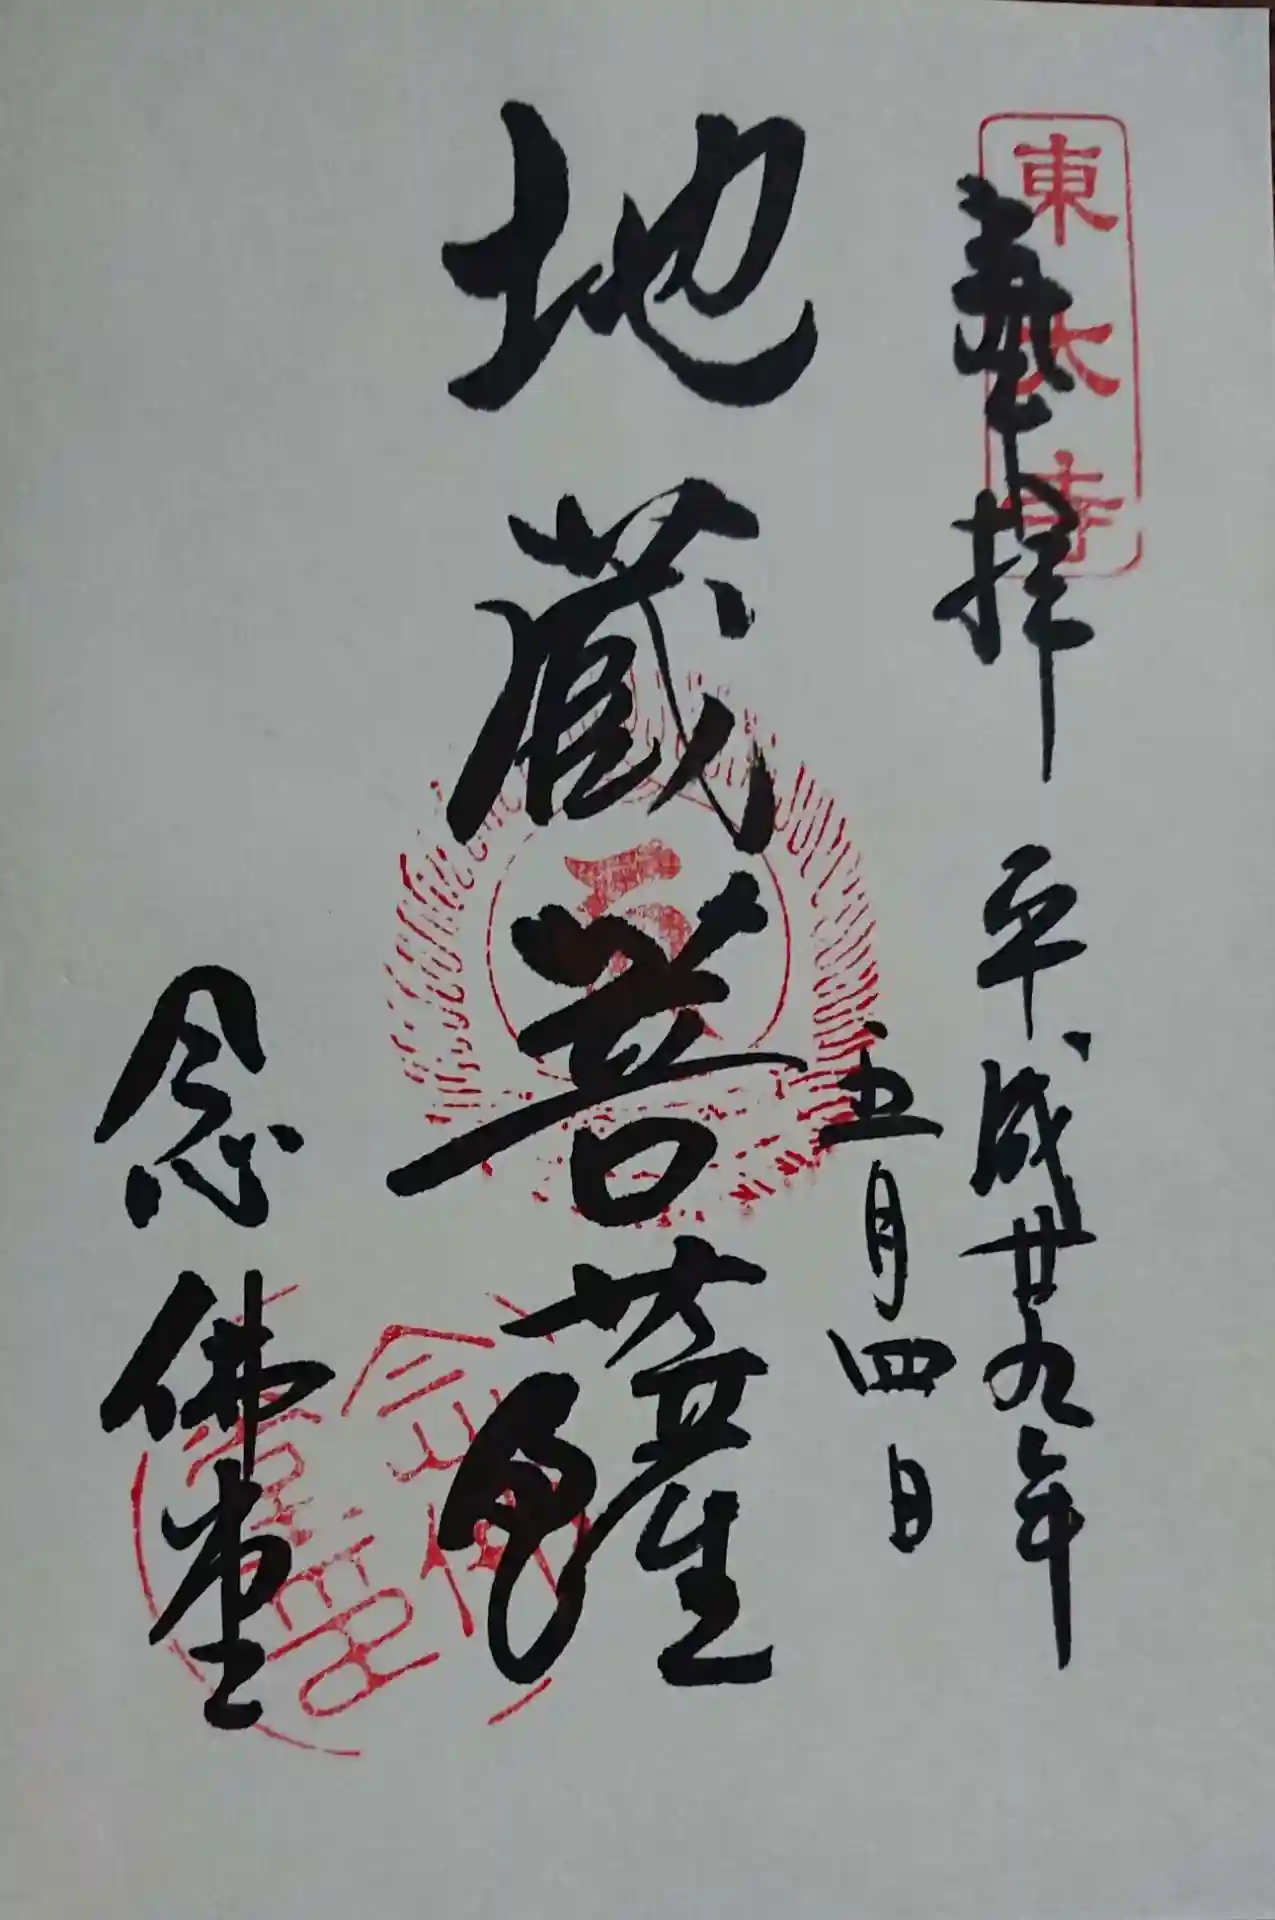 東大寺
奉拝
平成廿九年
五月四日
地蔵菩薩
念佛堂